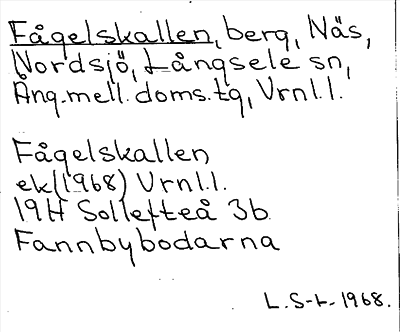 Fågelskallen, berg, Näs,
Nordsjö, Långsele sn,
Ång.mell.doms.tg, Vrnl.l.
Fågelskallen
ek(1968) Vrnl.l.
19H Sollefteå 3b
Fannbybodarna
L.S-t. 1968.